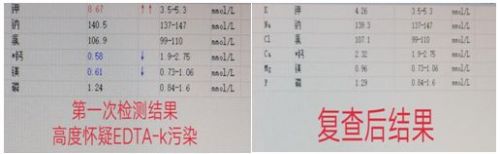 钾 8.67 ↑↑ 3.5-5.3 mmol/L
钠 140.5 137-147 mmol/L
氯 106.9 99-110 mmol/L
*钙 0.58 ↓ 1.9-2.75 mmol/L
镁 0.61 ↓ 0.73-1.06 mmol/L
磷 1.24 0.84-1.6 mmol/L
第一次检测结果
高度怀疑EDTA-k污染
K 钾 4.26 3.5-5.3 mmol/L
Na 钠 139.3 137-147 mmol/L
Cl 氯 107.1 99-110 mmol/L
Ca *钙 2.32 1.9-2.75 mmol/L
Mg 镁 0.96 0.73-1.06 mmol/L
P 磷 1.29 0.84-1.6 mmol/L
复查后结果